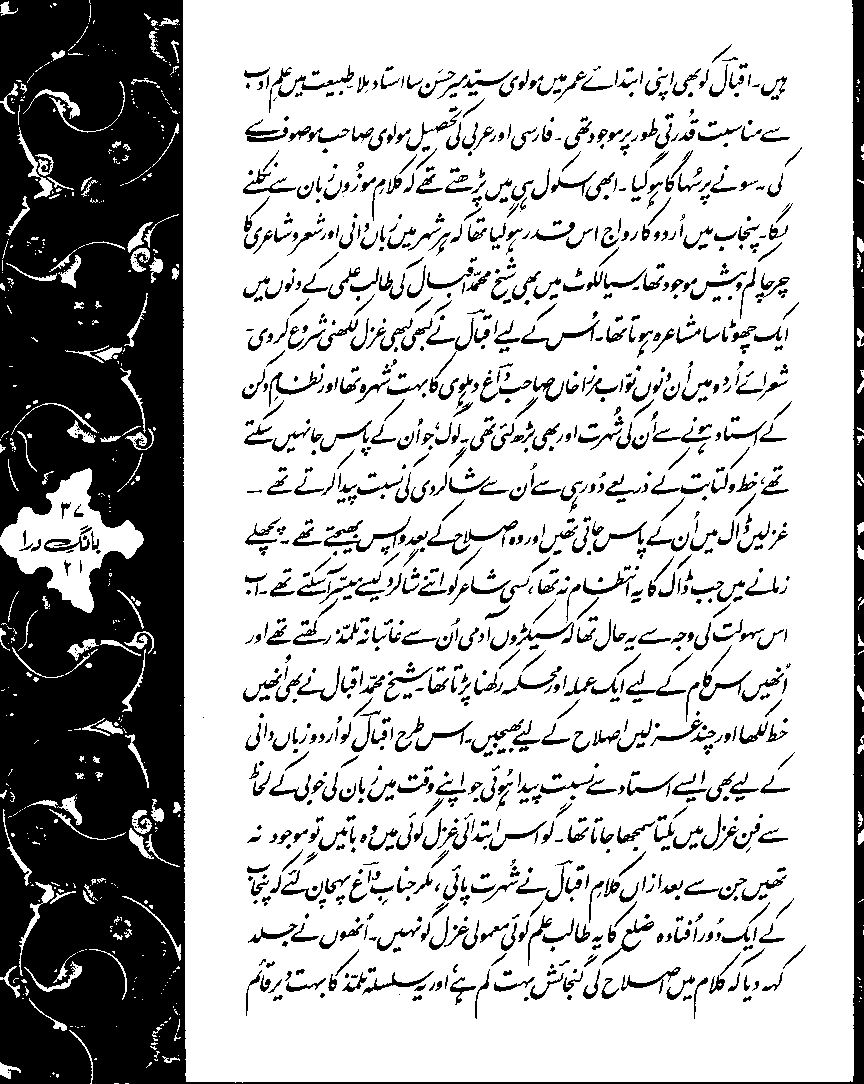 ہیں۔ اقبالؔ کو بھی اپنی ابتدائے عمر میں مولوی سیّد میر حسن سا استاد ملا۔ طبیعت میں علم و ادب
سے مناسبت قُدرتی طور پر موجود تھی۔ فارسی اور عربی کی تحصیل مولوی صاحب موصوف سے
کی۔ سونے پر سُہاگا ہو گیا۔ ابھی اسکول ہی میں پڑھتے تھے کہ کلامِ موزوں زبان سے نکلنے
لگا۔ پنجاب میں اُردو کا رواج اس قدر ہو گیا تھا کہ ہر شہر میں زباں دانی اور شعر و شاعری کا
چرچا کم و بیش موجود تھا۔ سیالکوٹ میں بھی شیخ محمد اقبال کی طالب علمی کے دنوں میں
ایک چھوٹا سا مشاعرہ ہوتا تھا۔ اُس کے لیے اقبالؔ نے کبھی کبھی غزل لکھنی شروع کر دی۔
شعرائے اُردو میں اُن دنوں نوّاب مرزا خاں صاحب داغؔ دہلوی کا بہت شُہرہ تھا اور نظامِ دکن
کے استاد ہونے سے اُن کی شُہرت اور بھی بڑھ گئی تھی۔ لوگ جو اُن کے پاس جا نہیں سکتے
تھے، خط و کتابت کے ذریعے دُور ہی سے اُن سے شاگردی کی نسبت پیدا کرتے تھے۔
غزلیں ڈاک میں اُن کے پاس جاتی تھیں اور وہ اصلاح کے بعد واپس بھیجتے تھے۔ پچھلے
زمانے میں جب ڈاک کا یہ انتظام نہ تھا، کسی شاعر کو اتنے شاگرد کیسے میسّر آ سکتے تھے۔ اب
اس سہولت کی وجہ سے یہ حال تھا کہ سیکڑوں آدمی اُن سے غائبانہ تلمّذ رکھتے تھے اور
اُنھیں اس کام کے لیے ایک عملہ اور محکمہ رکھنا پڑتا تھا۔ شیخ محمد اقبال نے بھی اُنھیں
خط لکھا اور چند غزلیں اصلاح کے لیے بھیجیں۔ اس طرح اقبالؔ کو اُردو زباں دانی
کے لیے بھی ایسے استاد سے نسبت پیدا ہوئی جو اپنے وقت میں زبان کی خوبی کے لحاظ
سے فنِ غزل میں یکتا سمجھا جاتا تھا۔ گو اس ابتدائی غزل گوئی میں وہ باتیں تو موجود نہ
تھیں جن سے بعد ازاں کلامِ اقبالؔ نے شُہرت پائی، مگر جنابِ داغؔ پہچان گئے کہ پنجاب
کے ایک دُور اُفتادہ ضلع کا یہ طالب علم کوئی معمولی غزل گو نہیں۔ اُنھوں نے جلد
کہہ دیا کہ کلام میں اصلاح کی گنجائش بہت کم ہے، اور یہ سلسلۂ تلمّذ کا بہت دیر قائم
۳۷
بانگِ درا
۲۱